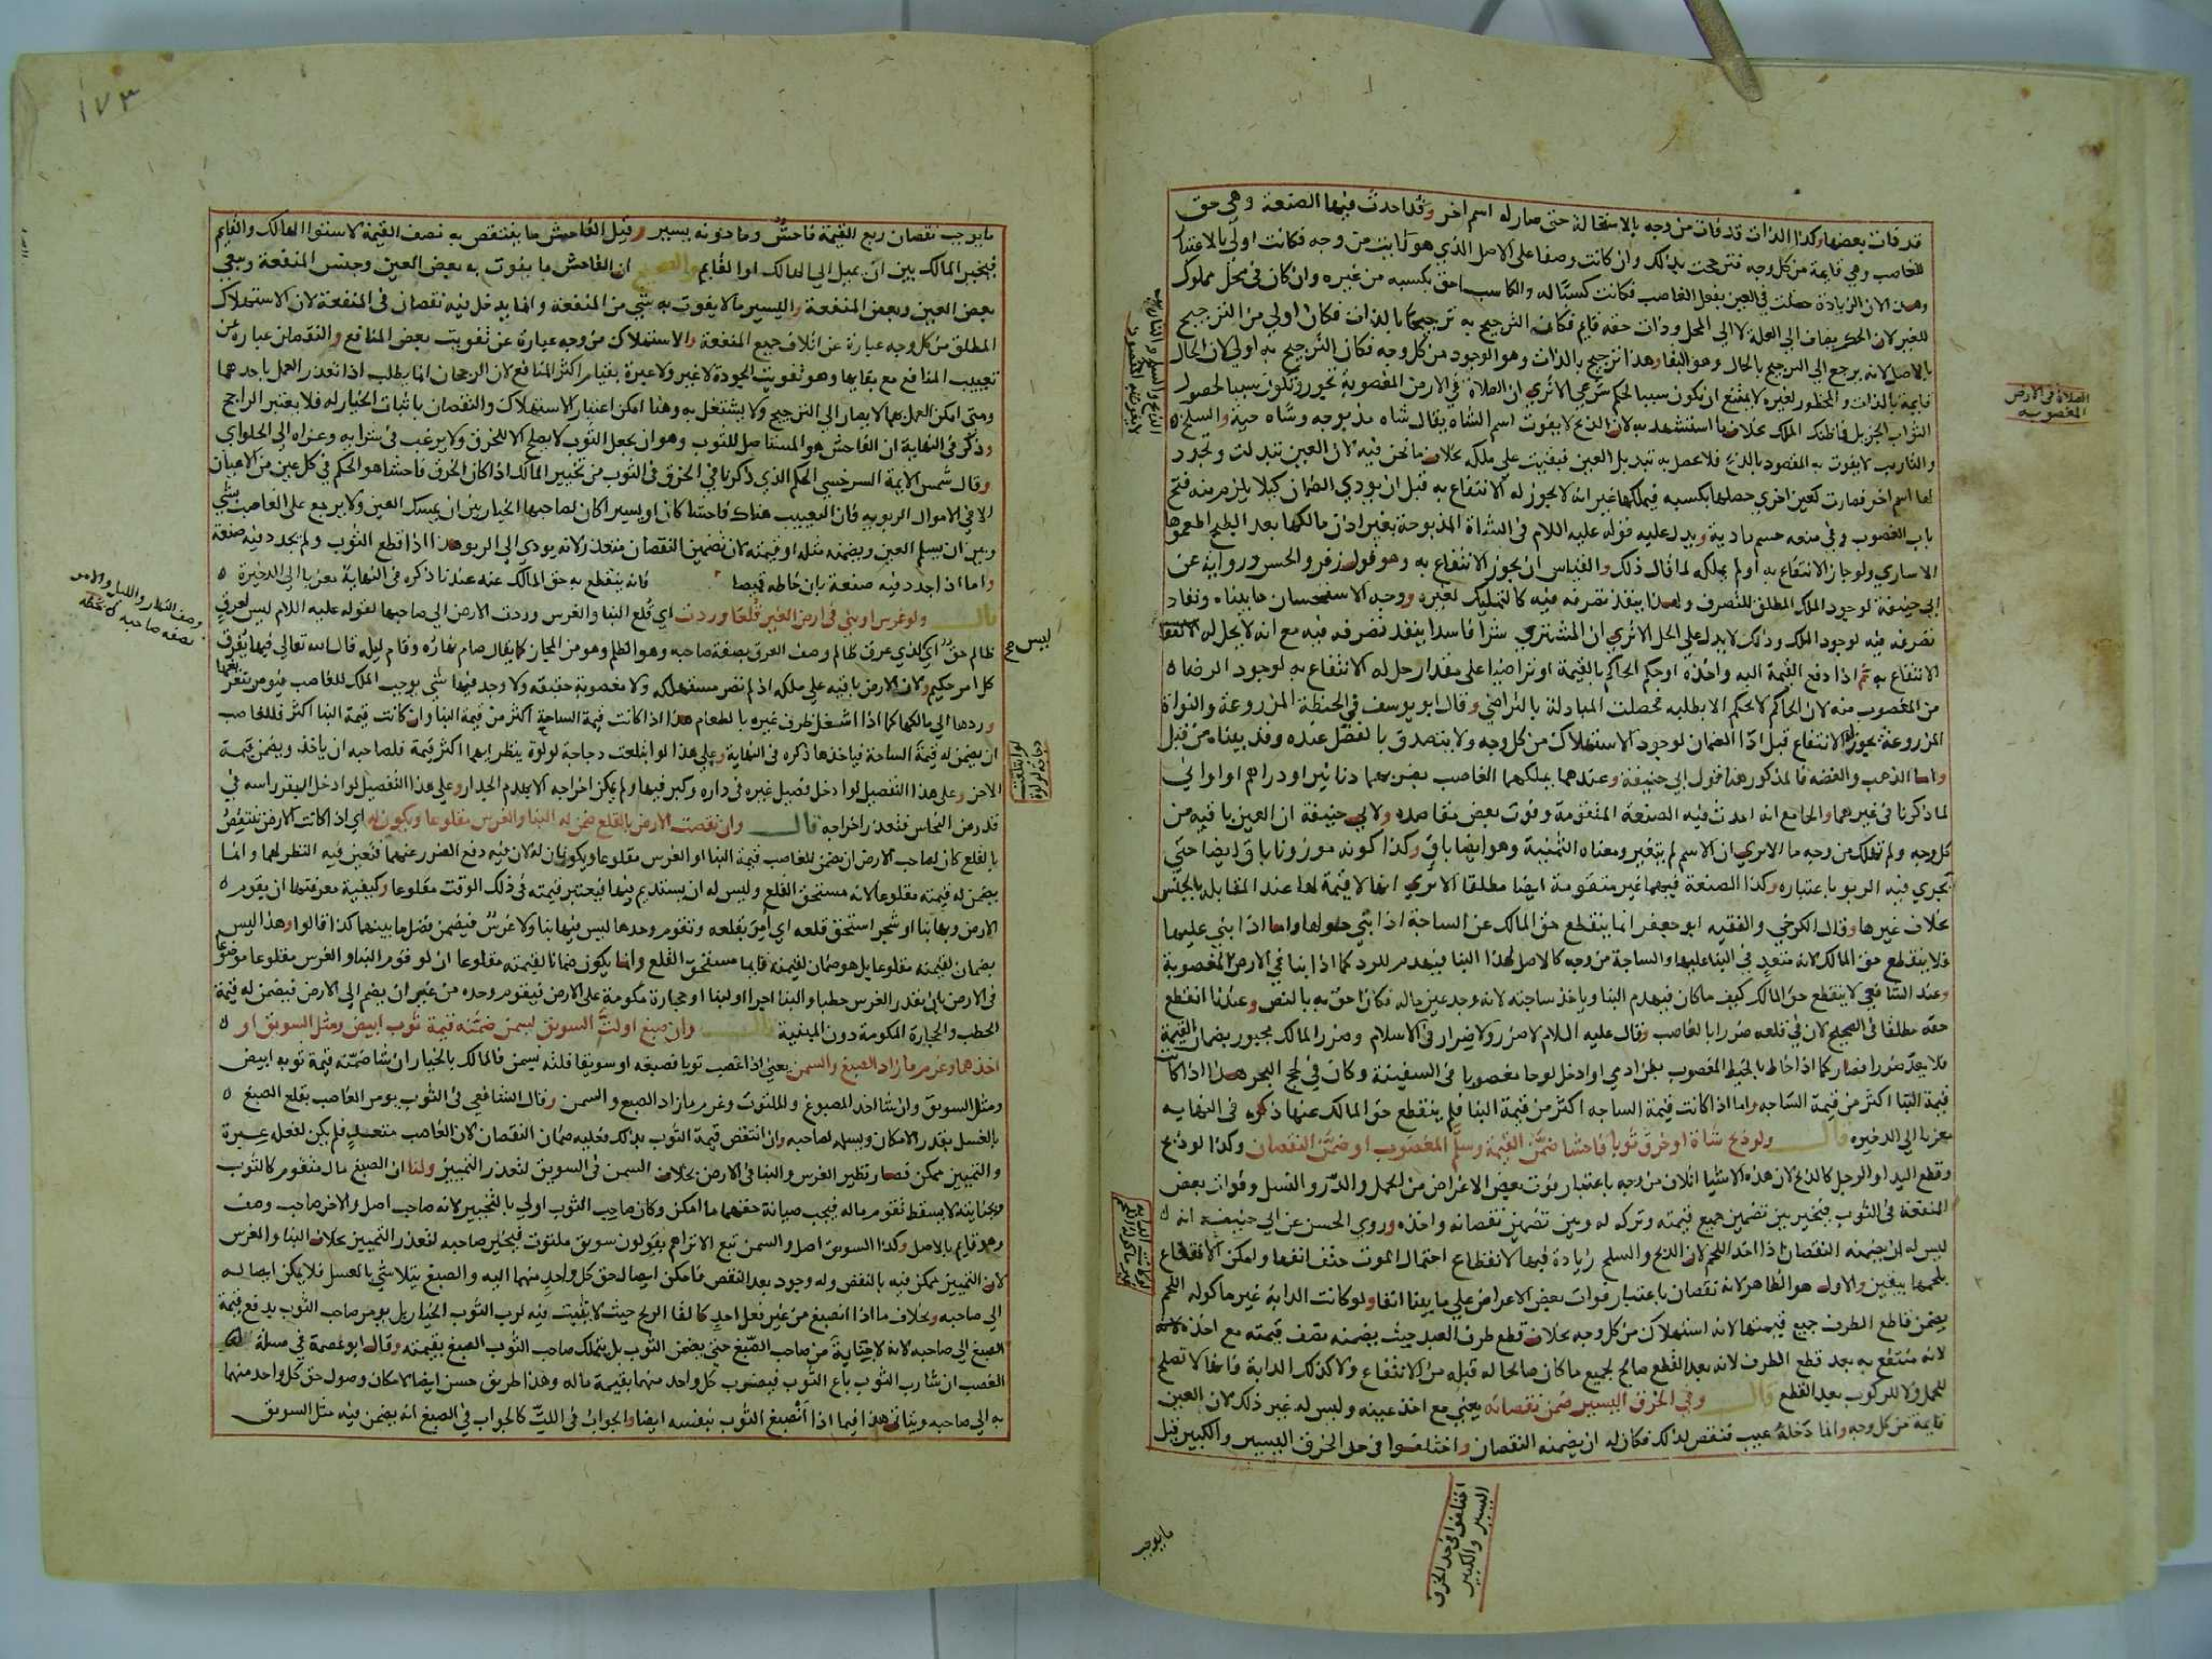 قد فات بعضها وكذا الذات قد فات من وجه بالاستحالة حتى صار له اسم اخر وقد احدث فيها الصنعة وهي حق
للغاصب وهي قايمة من كل وجه فترجحت بذلك وان كانت وصفا على الاصل الذي هو ثابت من وجه فكانت اولى بالاعتبار
وهذا لان الزيادة حصلت في العين بفعل الغاصب فكانت كسبا له والكاسب احق بكسبه من غيره وان كان في محل مملوك
للغير لان الحكم يضاف الى العلة لا الى المحل وذات حقه قايم فكان الترجيح به ترجيحا بالذات فكان اولى من الترجيح
بالاصل لانه يرجع الى الترجيح بالحال وهو البقا وهذا ترجيح بالذات وهو الوجود من كل وجه فكان الترجيح به اولى لان الحال
قايمة بالذات والمحظور لغيره لا يمتنع ان يكون سببا لحكم شرعي الا ترى ان الصلاة في الارض المغصوبة تجوز وتكون سببا لحصول
الثواب الجزيل فما ظنك الملك بخلاف ما استشهد به لان الذبح لا يفوت اسم الشاة يقال شاه مذبوحه وشاه حية والسلخ
والتاريب لا يفوت به المقصود بالذبح فلا يحصل به تبديل العين فبقيت على ملكه بخلاف ما نحن فيه لان العين تبدلت وتجدد
لها اسم اخر فصارت كعين اخرى حصلها بكسبه فيملكها غير انه لا يجوز له الانتفاع به قبل ان يودي الضمان كيلا يلزم منه فتح
باب الغصوب وفي منعه حسم مادته ويدل عليه قوله عليه السلام في الشاة المذبوحة بغير اذن مالكها بعد الطبخ اطعموها
الاسارى ولو جاز الانتفاع به او لم يملكه لما قال ذلك والقياس ان يجوز الانتفاع به وهو قول زفر والحسن ورواية عن
ابي حنيفة لوجود الملك المطلق للتصرف ولهذا ينفذ تصرفه فيه كالتمليك لغيره ووجه الاستحسان ما بيناه ونفاذ
تصرفه فيه لوجود الملك وذلك لا يدل على الحل الا ترى ان المشتري شرا فاسدا ينفذ تصرفه فيه مع انه لا يحل له الانتفاع
الانتفاع به ثم اذا دفع القيمة اليه واخذه او حكم الحاكم بالقيمة او تراضيا على مقدار حل له الانتفاع به لوجود الرضا
من المغصوب منه لان الحاكم لا يحكم الا بطلبه فحصلت المبادلة بالتراضي وقال ابو يوسف في الحنطة المزروعة والنواة
المزروعة يجوز له الانتفاع قبل ادا الضمان لوجود الاستهلاك من كل وجه ولا يتصدق بالفضل عنده وقد بيناه من قبل
واما الذهب والفضه فالمذكور هنا قول ابي حنيفة وعندهما يملكهما الغاصب بضربهما دنانير او دراهم او اواني
لما ذكرنا في غيرهما والجامع انه احدث فيه الصنعة المتقومة وفوت بعض مقاصده ولابي حنيفة ان العين باقيه من
كل وجه ولم تهلك من وجه ما الا يري ان الاسم لم يتغير ومعناه الثمنية وهو ايضا باق وكذا كونه موزونا باق ايضا حتى
يجري فيه الربو باعتباره وكذا الصنعة فيهما غير متقومة ايضا مطلقا الا ترى انها لا قيمة لها عند المقابلة بالجنس
بخلاف غيرها وقال الكرخي والفقيه ابو جعفر انما ينقطع حق المالك عن الساجة اذا بنى حولها واما اذا بنى عليها
فلا ينقطع حق المالك لانه متعد في البنا عليها والساجة من وجه كالاصل لهذا البنا فيهدم للرد كما اذا بنا في الارض المغصوبة
وعند الشافعي لا ينقطع حق المالك كيف ما كان فيهدم البنا وياخذ ساجته لانه وجد عين ماله فكان احق به بالنص وعندنا انقطع
حقه مطلقا في الصحيح لان في قلعه ضررا بالغاصب وقال عليه السلام لا ضرر ولا ضرار في الاسلام وضرر المالك مجبور بضمان القيمة
فلا يعد ضررا فصار كما اذا خاط بالخيط المغصوب بطن ادمي او ادخل لوحا مغصوبا في السفينة وكان في لجج البحر هذا اذا كانت
قيمة البنا اكثر من قيمة الساجه واما اذا كانت قيمة الساجه اكثر من قيمة البنا فلم ينقطع حق المالك عنها ذكره في النهايه
معزيا الى الدخيره قال ولو ذبح شاة او خرق ثوبا فاحشا ضمن القيمة وسلم المغصوب او ضمن النقصان وكذا لو ذبح
وقطع اليد او الرجل كالذبح لان هذه الاشيا اتلاف من وجه باعتبار فوت بعض الاغراض من الحمل والدر والنسل وفوات بعض
المنفعة في الثوب فيخير بين تضمين جميع قيمته وتركه له وبين تضمين نقصانه واخذه وروى الحسن عن ابي حنيفة انه
ليس له ان يضمنه النقصان اذا اخذ اللحم لان الذبح والسلخ زيادة فيها لانقطاع احتمال الموت حتف انفها وامكن الانتفاع
بلحمها بيقين والاول هو الظاهر لانه نقصان باعتبار فوات بعض الاعراض على ما بينا انفا ولو كانت الدابة غير ماكوله اللحم
يضمن قاطع الطرف جميع قيمتها لانه استهلاك من كل وجه بخلاف قطع طرف العبد حيث يضمنه نصف قيمته مع اخذه لانه
لانه منتفع به بعد قطع الطرف لانه بعد القطع صالح لجميع ما كان صالحا له قبله من الانتفاع ولا كذلك الدابة فانها لا تصلح
للحمل ولا للركوب بعد القطع قال وفي الخرق اليسير ضمن نقصانه يعني مع اخذ عينه وليس له غير ذلك لان العين
قايمة من كل وجه وانما دخله عيب فنقص لذلك فكان له ان يضمنه النقصان واختلفوا في حد الخرق اليسير والكبير قيل
الصلاة في الارض
المغصوبه
الذبح والسلخ والتاريب
لا يفوت به المقصود
لو كانت الدابه
غير ماكولة اللحم
اختلفوا في حد الخرق
اليسير والكبير
ما يوجب
١٧٣
ما يوجب نقصان ربع القيمة فاحش وما دونه يسير وقيل الفاحش ما ينتقص به نصف القيمة لاستوا الهالك والقايم
فيخير المالك بين ان يميل الى الهالك او القايم والصحيح ان الفاحش ما يفوت به بعض العين وجنس المنفعة ويبقى
بعض العين وبعض المنفعة واليسير ما لا يفوت به شي من المنفعة وانما يدخل فيه نقصان في المنفعة لان الاستهلاك
المطلق من كل وجه عبارة عن اتلاف جميع المنفعة والاستهلاك من وجه عبارة عن تفويت بعض المنافع والنقصان عبارة عن
تعييب المنافع مع بقايها وهو تفويت الجودة لا غير ولا عبرة بقيام اكثر المنافع لان الرجحان انما يطلب اذا تعذر العمل باحدهما
ومتى امكن العمل بهما لا يصار الى الترجيح ولا يشتغل به وهنا امكن اعتبار الاستهلاك والنقصان باثبات الخيار له فلا يعتبر الراجح
وذكر في النهاية ان الفاحش هو المستاصل للثوب وهو ان يجعل الثوب لا يصلح الا للخرق ولا يرغب في شرايه وعزاه الى الحلواي
وقال شمس الايمة السرخسي الحكم الذي ذكرنا في الخرق في الثوب من تخيير المالك اذا كان الخرق فاحشا هو الحكم في كل عين من الاعيان
الا في الاموال الربويه فان التعييب هناك فاحشا كان او يسيرا كان لصاحبها الخيار بين ان يمسك العين ولا يرجع على الغاصب بشي
وبين ان يسلم العين ويضمنه مثله او قيمته لان تضمين النقصان متعذر لانه يودي الى الربو هذا اذا قطع الثوب ولم يجدد فيه صنعة
واما اذا جدد فيه صنعة بان خاطه قميصا فانه ينقطع به حق المالك عنه عندنا ذكره في النهاية معزيا الى الدخيرة
قال ولو غرس او بنى في ارض الغير قلعا وردت اي قلع البنا والغرس وردت الارض الى صاحبها لقوله عليه السلام ليس لعرق
ظالم حق اي لذي عرق ظالم وصف العرق بصفة صاحبه وهو الظلم وهو من المجاز كما يقال صام نهاره وقام ليله قال الله تعالى فيها يفرق
كل امر حكيم ولان الارض باقيه على ملكه اذ لم تصر مستهلكه ولا مغصوبة حقيقه ولا وجد فيها شي يوجب الملك للغاصب فيومر بتفريغها
وردها الى مالكها كما اذا اشغل ظرف غيره بالطعام هذا اذا كانت قيمة الساحة اكثر من قيمة البنا وان كانت قيمة البنا اكثر فللغاصب
ان يضمن له قيمة الساحة فياخذها ذكره في النهاية وعلى هذا لو ابتلعت دجاجة لولوة ينظر ايهما اكثر قيمة فلصاحبه ان ياخذ ويضمن قيمة
الاخر وعلى هذا التفصيل لو ادخل فصيل غيره في داره وكبر فيها ولم يمكن اخراجه الا بهدم الجدار وعلى هذا التفصيل لو ادخل البقر راسه في
قدر من النحاس فتعذر اخراجه قال وان نقصت الارض بالقلع ضمن له البنا والغرس مقلوعا ويكون له اي اذا كانت الارض تنتقص
بالقلع كان لصاحب الارض ان يضمن للغاصب قيمة البنا او الغرس مقلوعا ويكونان له لان فيه دفع الضرر عنهما فتعين فيه النظر لهما وانما
يضمن له قيمته مقلوعا لانه مستحق القلع وليس له ان يستديم فيها فيعتبر قيمته في ذلك الوقت مقلوعا وكيفية معرفتها ان يقوم
الارض وبها بنا او شجر استحق قلعه اي امر بقلعه وتقوم وحدها ليس فيها بنا ولا غرس فيضمن فضل ما بينهما كذا قالوا وهذا ليس
بضمان لقيمته مقلوعا بل هو ضمان لقيمته قايما مستحق القلع وانما يكون ضمانا لقيمته مقلوعا ان لو قوم البنا والغرس مقلوعا موضوعا
في الارض بان يقدر الغرس حطبا والبنا اجرا او لبنا او حجارة مكومة على الارض فيقوم وحده من غير ان يضم الى الارض فيضمن له قيمة
الحطب والحجارة المكومة دون المبنية قال وان صبغ او لت السويق بسمن ضمنه قيمة ثوب ابيض ومثل السويق او
اخذهما وغرم ما زاد الصبغ والسمن يعني اذا غصب ثوبا فصبغه او سويقا فلته بسمن فالمالك بالخيار ان شا ضمنه قيمة ثوبه ابيض
ومثل السويق وان شا اخذ المصبوغ والملتوت وغرم ما زاد الصبغ والسمن وقال الشافعي في الثوب يومر الغاصب بقلع الصبغ
بالغسل بقدر الامكان ويسلمه لصاحبه وان انتقص قيمة الثوب بذلك فعليه ضمان النقصان لان الغاصب متعد فلم يكن لفعله عبرة
والتمييز ممكن فصار نظير الغرس والبنا في الارض بخلاف السمن في السويق لتعذر التمييز ولنا ان الصبغ مال متقوم كالثوب
وبجنايته لا يسقط تقوم ماله فيجب صيانة حقهما ما امكن وكان صاحب الثوب اولى بالتخيير لانه صاحب اصل والاخر صاحب وصف
وهو قايم بالاصل وكذا السويق اصل والسمن تبع الا تراهم يقولون سويق ملتوت فيخير صاحبه لتعذر التمييز بخلاف البنا والغرس
لان التمييز ممكن فيه بالنقض وله وجود بعد النقض فامكن ايصال حق كل واحد منهما اليه والصبغ يتلاشى بالغسل فلا يمكن ايصاله
الى صاحبه وبخلاف ما اذا انصبغ من غير فعل احد كالقا الريح حيث لا يثبت فيه لرب الثوب الخيار بل يومر صاحب الثوب بدفع قيمة
الصبغ الى صاحبه لانه لا جناية من صاحب الصبغ حتى يضمن الثوب بل يتملك صاحب الثوب الصبغ بقيمته وقال ابو عصمة في مسلة
الغصب ان شا رب الثوب باع الثوب فيضرب كل واحد منهما بقيمة ماله وهذا طريق حسن ايضا لامكان وصول حق كل واحد منهما
به الى صاحبه ويتاتى هذا فيما اذا انصبغ الثوب بنفسه ايضا والجواب في اللت كالجواب في الصبغ انه يضمن فيه مثل السويق
ليس صح
لو ابتلعت
دجاجة لولوة
وصف النهار والليل والامر
بصفه صاحبه